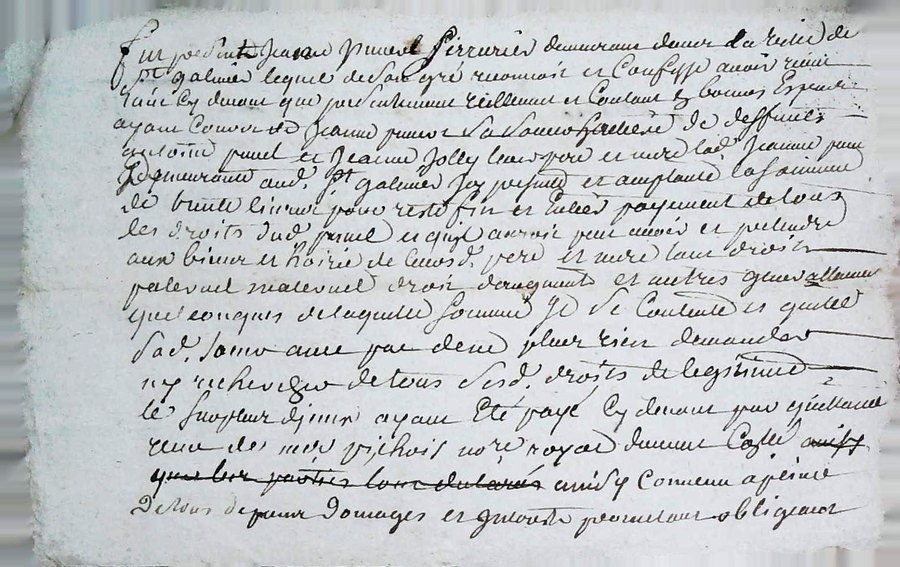 fut present Jean prunel serrurier demeurant dans la ville de
st galmier lequel de son gré reconnoit et confesse avoir reçu
tant cy devant que presentement reellement et contant en bonnes Especes
ayant cours de Jeanne prunel sa soeur de deffunts
antoine prunel et Jeanne Jolly leurs pere et mere lad. Jeanne prunel
demeurante aud. st galmier icy presente et acceptante la somme
de trente livres pour reste fin et entier payement de tous
les droits dud. prunel et qu'il auroit peut avoir et pretendre
aux biens et hoirie de leursd. pere et mere tant droits
paternel maternel droit daugment et autres generallement
quelconques de laquelle somme il se contente et quitte
sad. soeur avec pac de ne plus rien demander
ny rechercher de tous sesd. droits de legitime
le surplus d'jceux ayant Eté payé cy devant par quittance
reçue de me pichois nore royal
ainsy convenu a peine
De tous depens domages et interets promettant obligeant